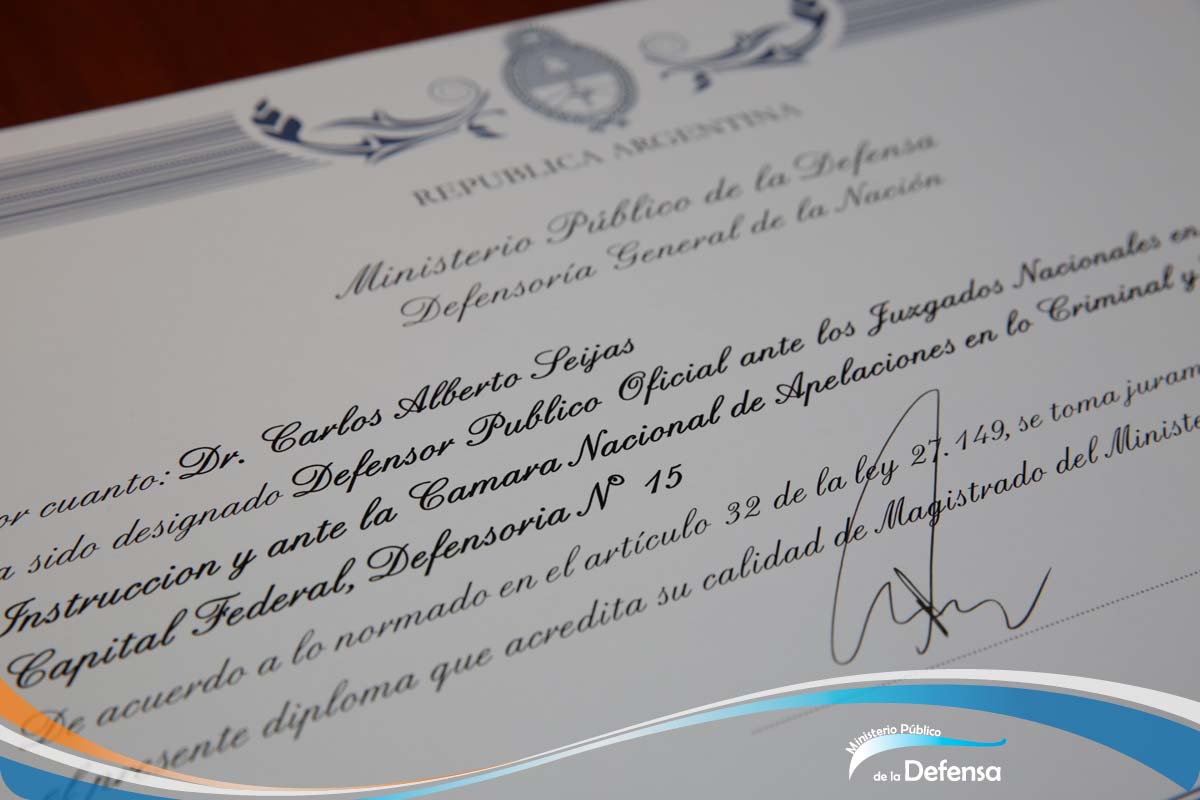 REPUBLICA ARGENTINA
Ministerio Público de la Defensa
Defensoría General de la Nación
or cuanto: Dr. Carlos Alberto Seijas
a sido designado Defensor Publico Oficial ante los Juzgados Nacionales en
Instruccion y ante la Camara Nacional de Apelaciones en lo Criminal y
Capital Federal, Defensoria N° 15
De acuerdo a lo normado en el artículo 32 de la ley 27.149, se toma juram
el presente diploma que acredita su calidad de Magistrado del Ministe
Ministerio Público
de la Defensa